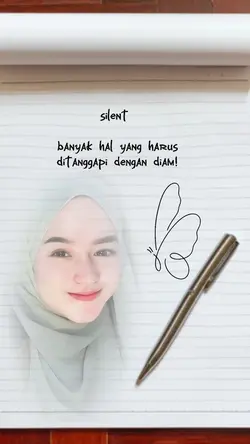 silent
banyak hal yang harus
ditanggapi dengan diam!